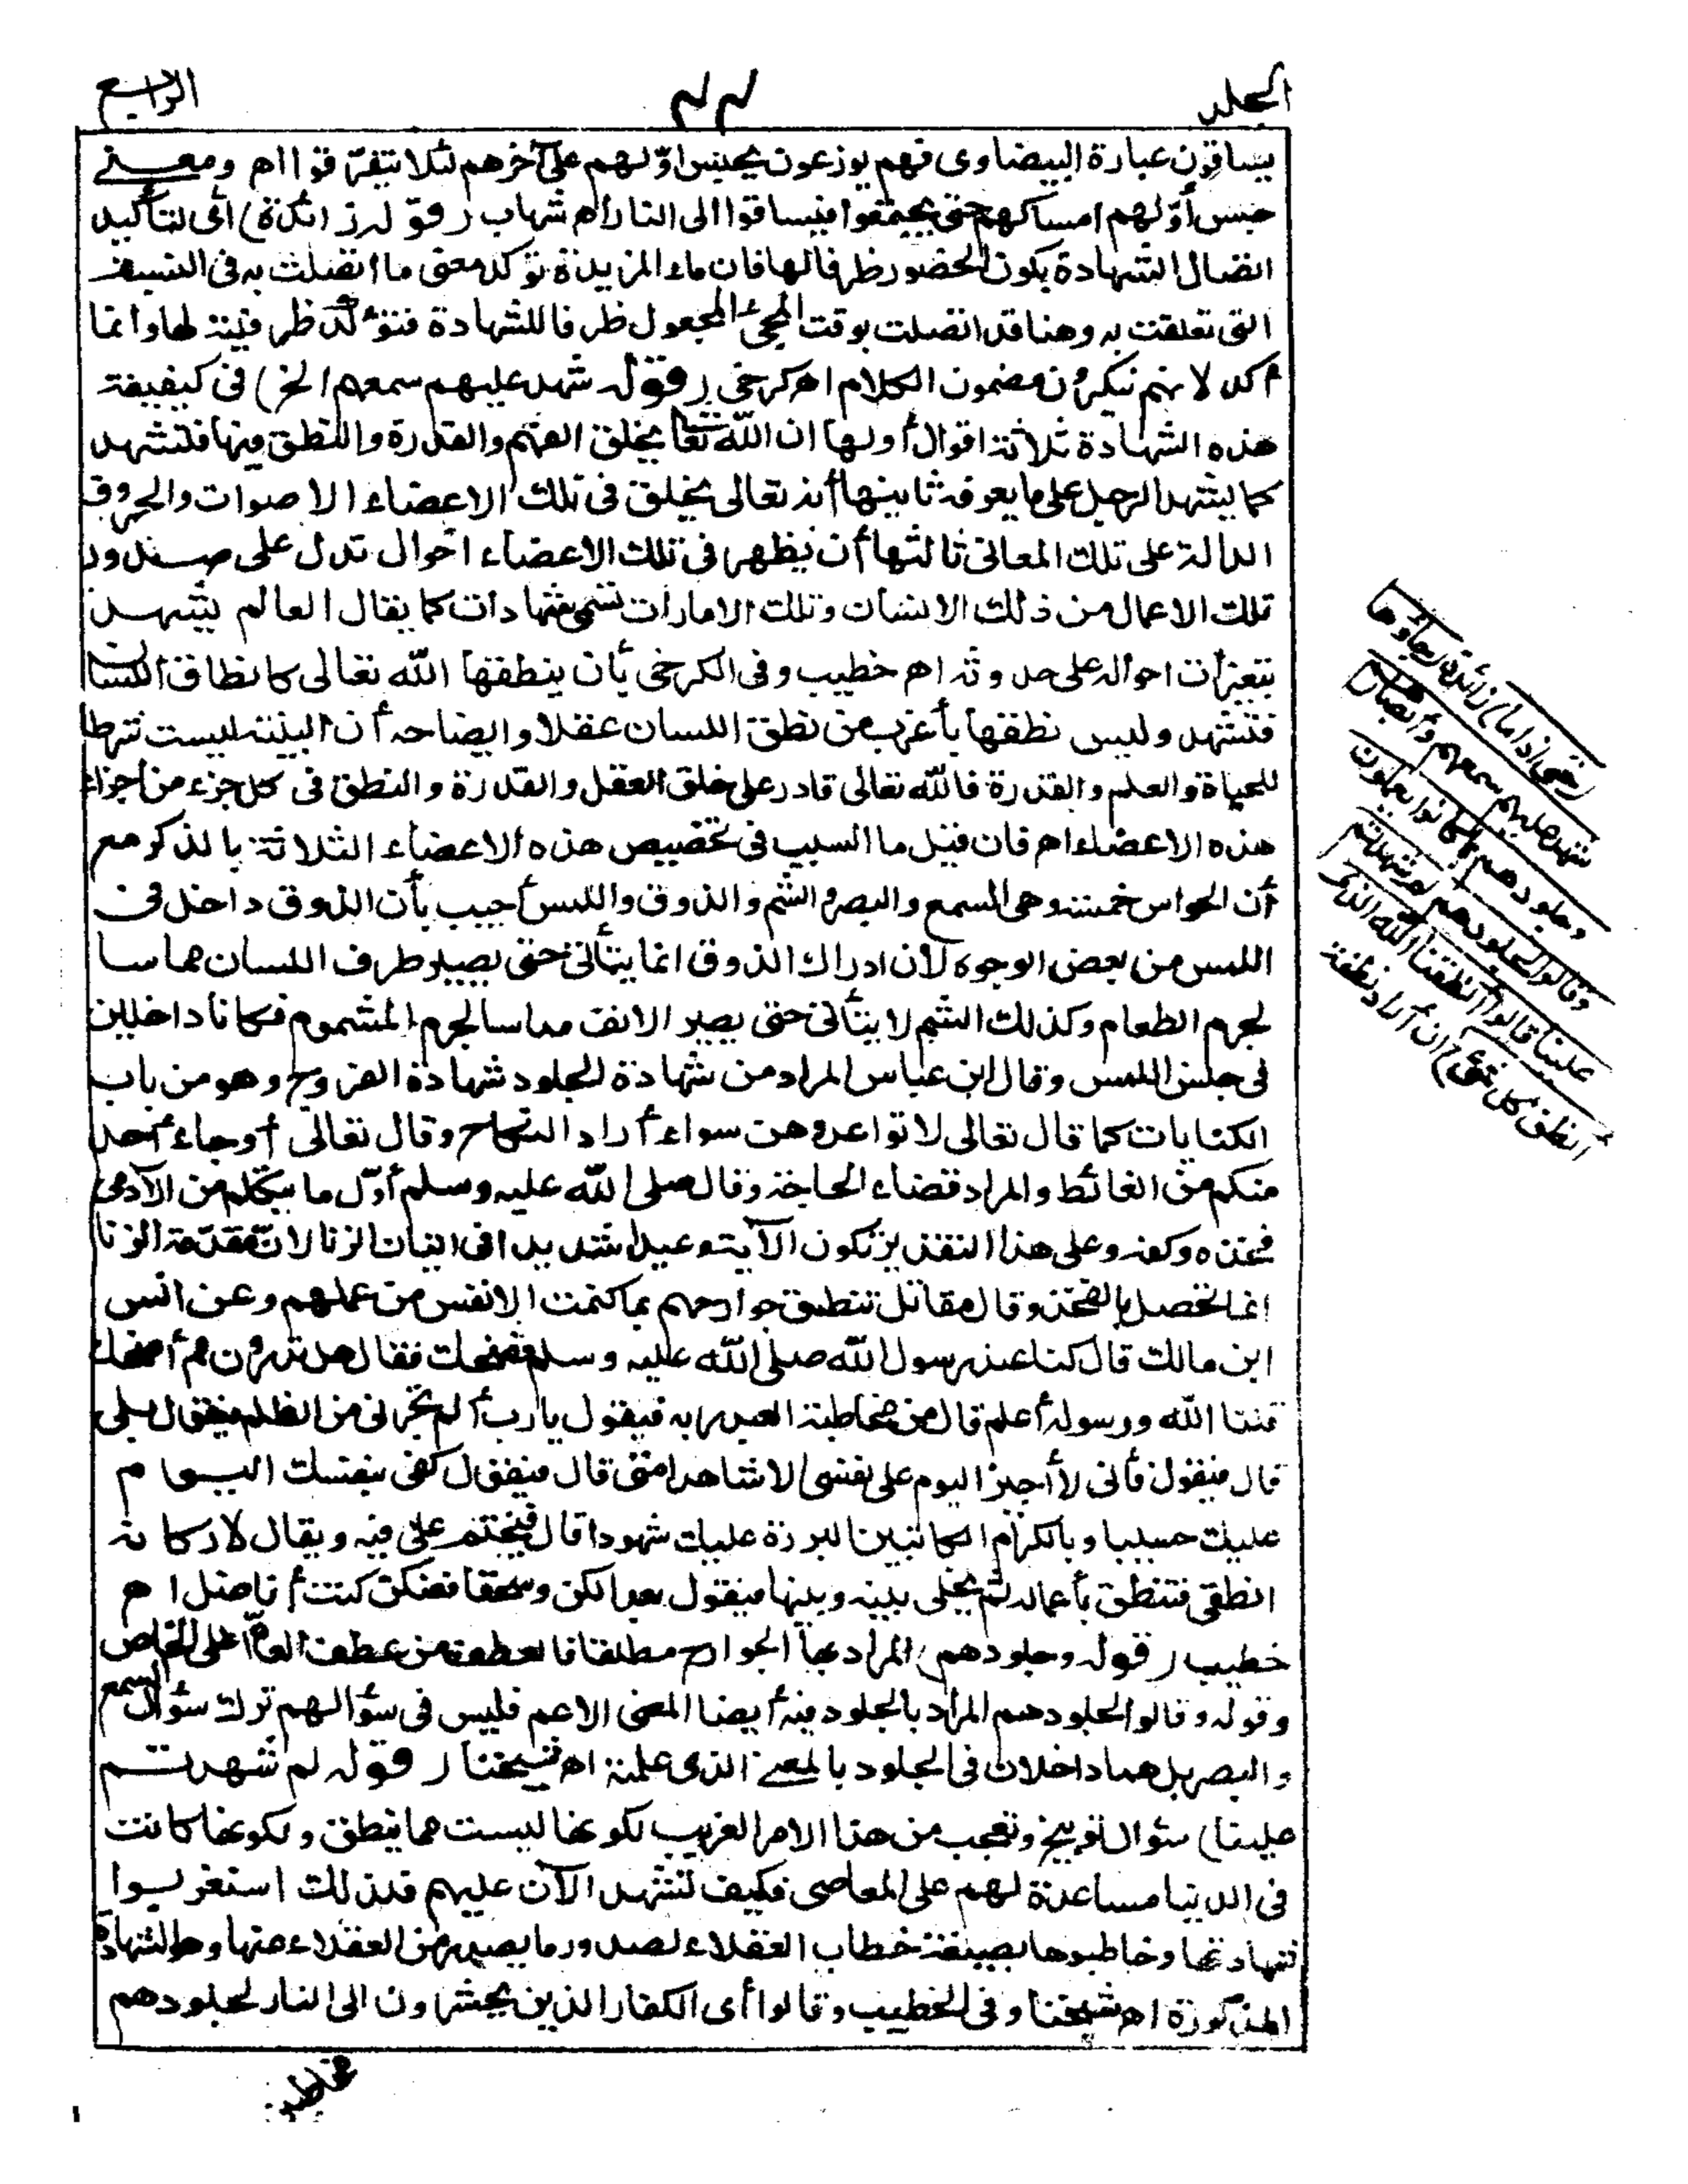 المجلد
٤٤
الرابع
يساقون عبارة البيضاوى فهم يوزعون يحبس اوّلهم على آخرهم لئلا يتفرّقوا اه ومعنى
حبس أوّلهم امساكهم حتى يجتمعوا فيساقوا الى النار اه شهاب (قوله زائدة) أى لتأكيد
اتصال الشهادة بكون الحضور ظرفا لها فان ما المزيدة تؤكد معنى ما اتصلت به فى النسبة
التى تعلقت به وهنا قد اتصلت بوقت المجئ المجعول ظرفا للشهادة فتؤكد ظرفيته لها وانما
أكد لانهم ينكرون مضمون الكلام اه كرخى (قوله شهد عليهم سمعهم الخ) فى كيفية
هذه الشهادة ثلاثة اقوال أولها ان الله تعالى يخلق الفهم والقدرة والنطق فيها فتشهد
كما يشهد الرجل على ما يعرفه ثانيها أنه تعالى يخلق فى تلك الاعضاء الاصوات والحروف
الدالة على تلك المعانى ثالثها أن يظهر فى تلك الاعضاء احوال تدل على صدور
تلك الاعمال من ذلك الانسان وتلك الامارات تسمى شهادات كما يقال العالم يشهد
بتغيرات احواله على حدوثه اه خطيب وفى الكرخى بأن ينطقها الله تعالى كانطاق اللسان
فتشهد وليس نطقها بأغرب من نطق اللسان عقلا وايضاحه أن البينة ليست شرطا
للحياة والعلم والقدرة فالله تعالى قادر على خلق العقل والقدرة والنطق فى كل جزء من اجزاء
هذه الاعضاء اه فان قيل ما السبب فى تخصيص هذه الاعضاء الثلاثة بالذكر مع
أن الحواس خمسة وهى السمع والبصر والشم والذوق واللمس أجيب بأن الذوق داخل فى
اللمس من بعض الوجوه لأن ادراك الذوق انما يتأتى حتى يصير طرف اللسان مماسا
لجرم الطعام وكذلك الشم لا يتأتى حتى يصير الانف مماسا لجرم المشموم فكانا داخلين
فى جنس اللمس وقال ابن عباس المراد من شهادة الجلود شهادة الفروج وهو من باب
الكنايات كما قال تعالى لا تواعدوهن سرا وأراد النكاح وقال تعالى أوجاء أحد
منكم من الغائط والمراد قضاء الحاجة وقال صلى الله عليه وسلم أوّل ما يتكلم من الآدمى
فخذه وكفه وعلى هذا التقدير تكون الآية وعيدا شديدا فى اتيان الزنا لان مقدّمة الزنا
انما تحصل بالفخذ وقال مقاتل تنطق جوارحهم بما كتمت الانفس من عملهم وعن انس
ابن مالك قال كنا عند رسول الله صلى الله عليه وسلم فضحك فقال هل تدرون مم أضحك
قلنا الله ورسوله أعلم قال من مخاطبة العبد ربه فيقول يا رب ألم تجرنى من الظلم فيقول بلى
قال فيقول فأنى لا أجيز اليوم على نفسى الا شاهدا منى قال فيقول كفى بنفسك اليوم
عليك حسيبا وبالكرام الكاتبين البررة عليك شهودا قال فيختم على فيه ويقال لاركانه
انطقى فتنطق بأعماله ثم يخلى بينه وبينها فيقول بعدا لكن وسحقا فعنكن كنت أناضل اه
خطيب (قوله وجلودهم) المراد بها الجوارح مطلقا فالعطف من عطف العامّ على الخاص
وقوله وقالوا لجلودهم المراد بالجلود فيه أيضا المعنى الاعم فليس فى سؤالهم ترك سؤال السمع
والبصر بل هما داخلان فى الجلود بالمعنى الذى علمته اه شيخنا (قوله لم شهدتم
علينا) سئوال توبيخ وتعجب من هذا الامر الغريب لكونها ليست مما ينطق ولكونها كانت
فى الدنيا مساعدة لهم على المعاصى فكيف تشهد الآن عليهم فلذلك استغربوا
شهادتها وخاطبوها بصيغة خطاب العقلاء لصدور ما يصدر من العقلاء عنها وهو الشهادة
المذكورة اه شيخنا وفى الخطيب وقالوا أى الكفار الذين يحشرون الى النار لجلودهم
(حتى اذا ما) زائدة (جاؤها
شهد عليهم سمعهم وأبصارهم
وجلودهم بما كانوا يعملون
وقالوا لجلودهم لم شهدتم
علينا قالوا أنطقنا الله الذى
أنطق كل شئ) أى أراد نطقه